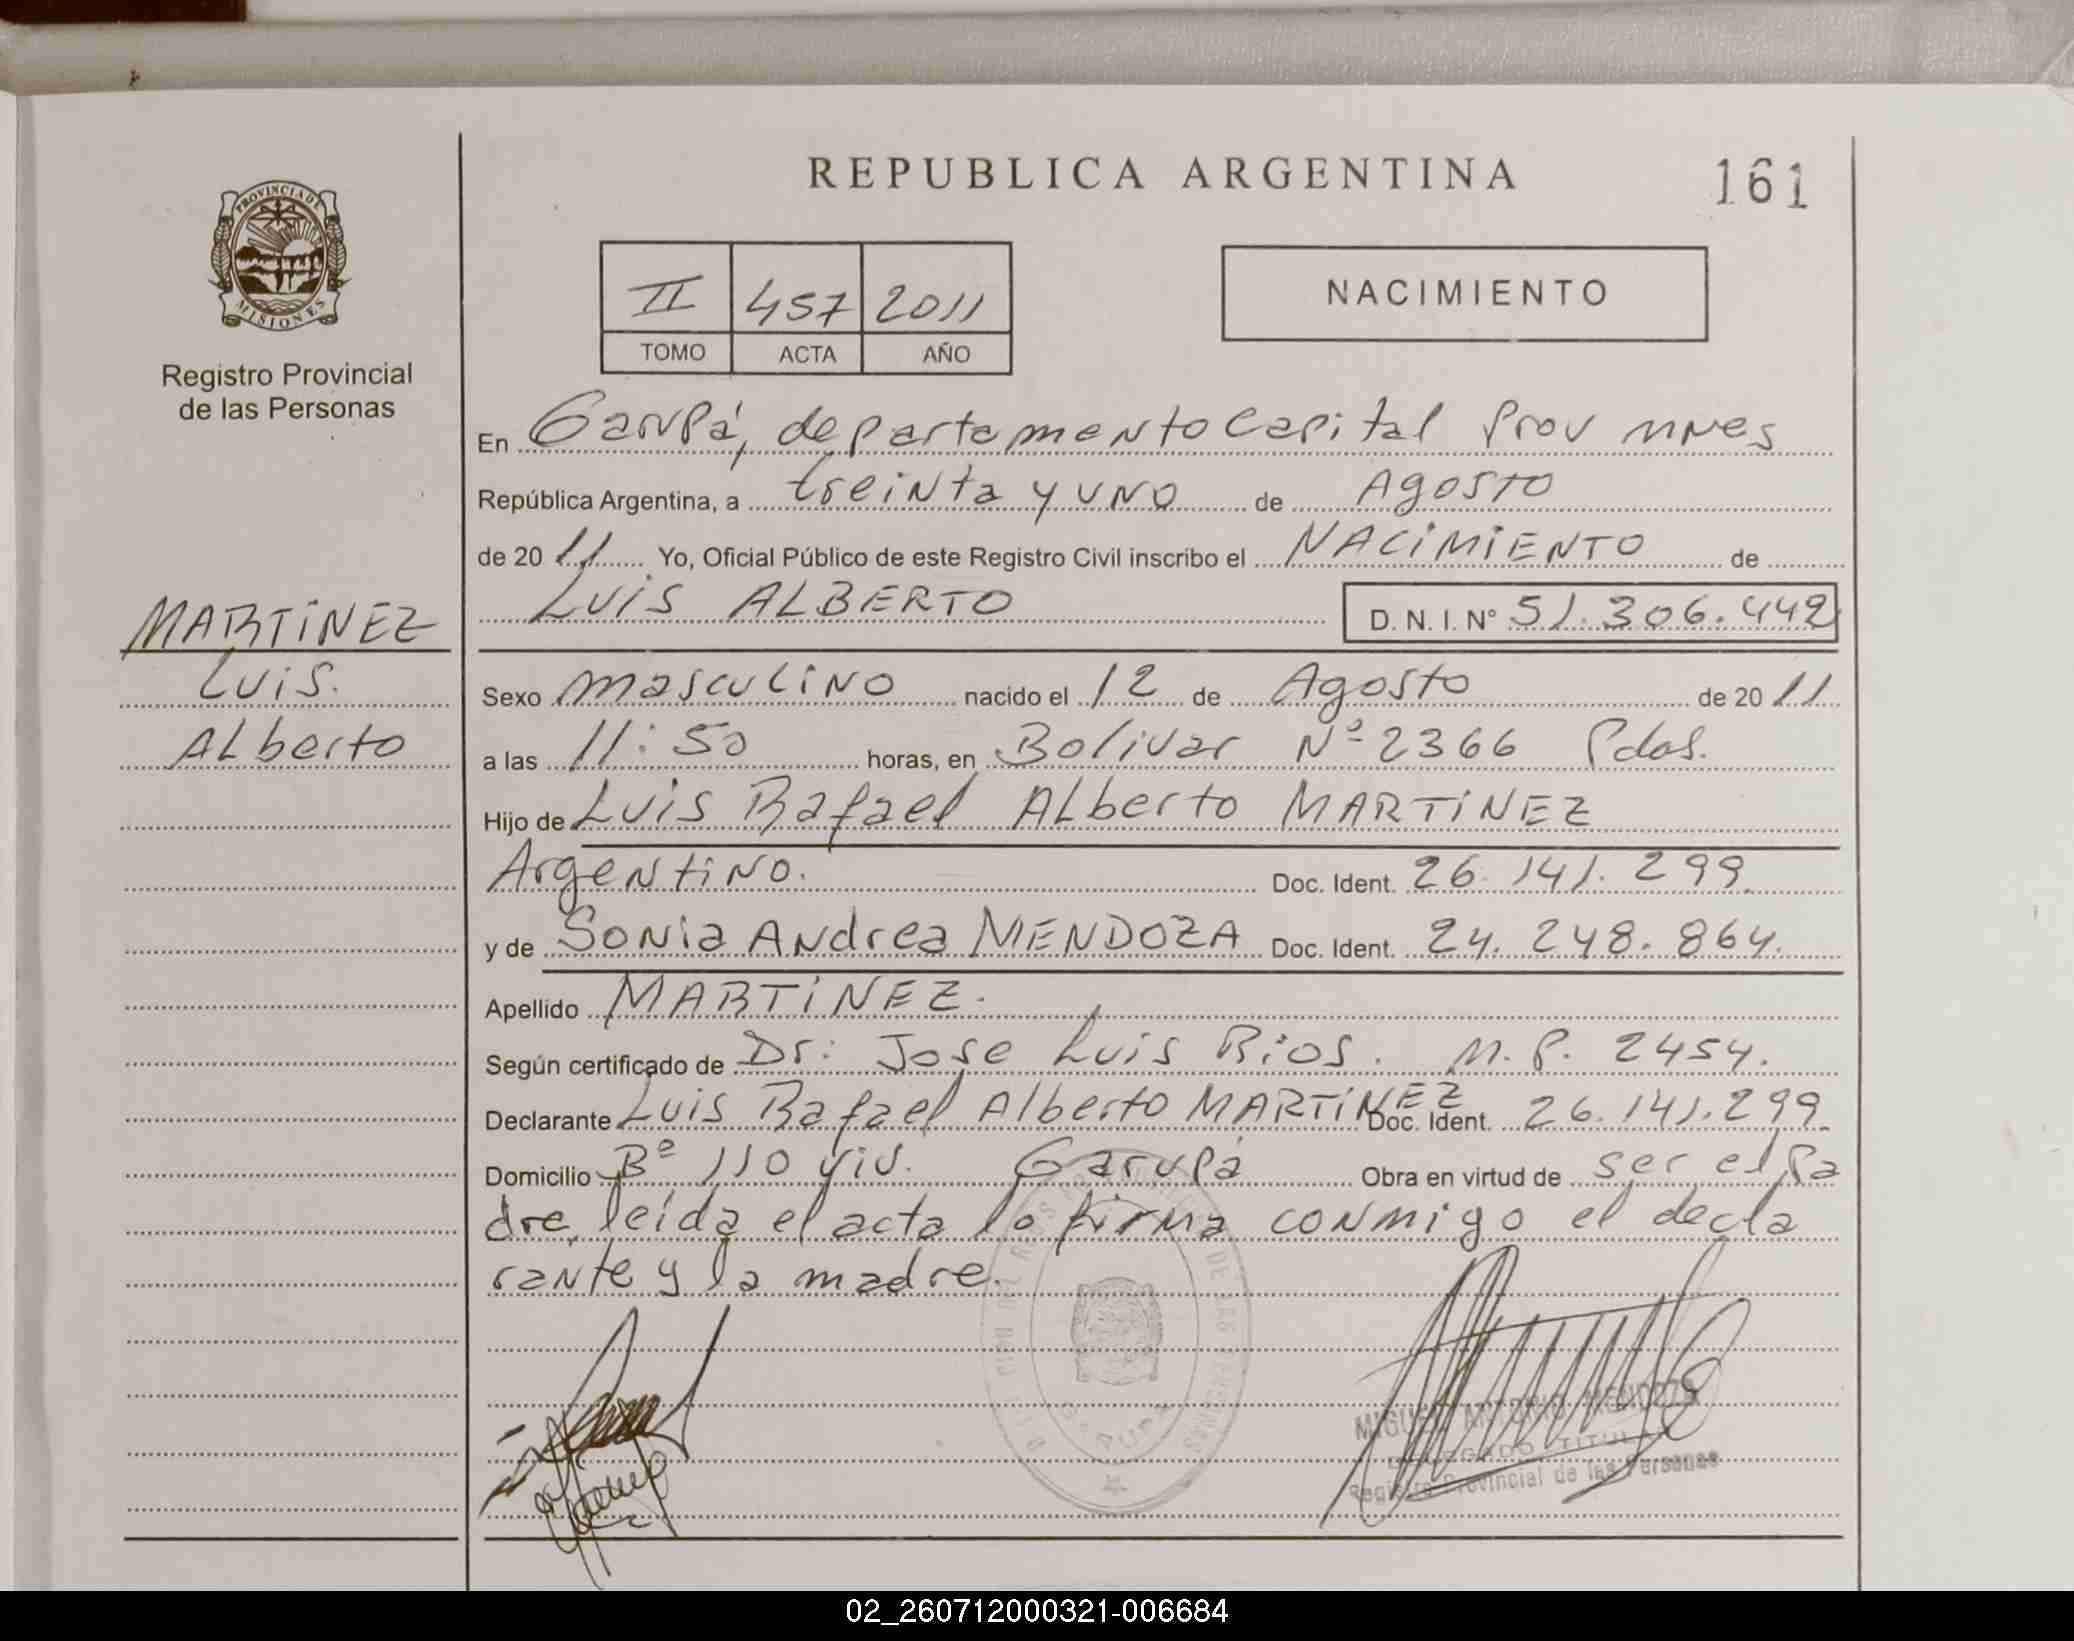 REPUBLICA ARGENTINA
161
PROVINCIA DE
MISIONES
Registro Provincial
de las Personas
II 457 2011
TOMO ACTA AÑO
NACIMIENTO
En Garupá, departamento Capital Prov mnes
República Argentina, a treinta y uno de Agosto
de 20 11 Yo, Oficial Público de este Registro Civil inscribo el NACIMIENTO de
LUIS ALBERTO D. N. I. Nº 51.306.442
MARTINEZ
Luis.
Alberto
Sexo masculino nacido el 12 de Agosto de 20 11
a las 11:50 horas, en Bolivar Nº 2366 Pdas.
Hijo de Luis Rafael Alberto MARTINEZ
Argentino. Doc. Ident. 26.141.299.
y de Sonia Andrea MENDOZA Doc. Ident. 24.248.864.
Apellido MARTINEZ.
Según certificado de Dr: Jose Luis Rios. M.P. 2454.
Declarante Luis Rafael Alberto MARTINEZ Doc. Ident. 26.141.299.
Domicilio Bº 110 viv. Garupá Obra en virtud de ser el pa
dre, leída el acta lo firma conmigo el decla
rante y la madre.
MIGUEL ANTONIO MENDOZA
DELEGADO TITULAR
Registro Provincial de las Personas
02_260712000321-006684